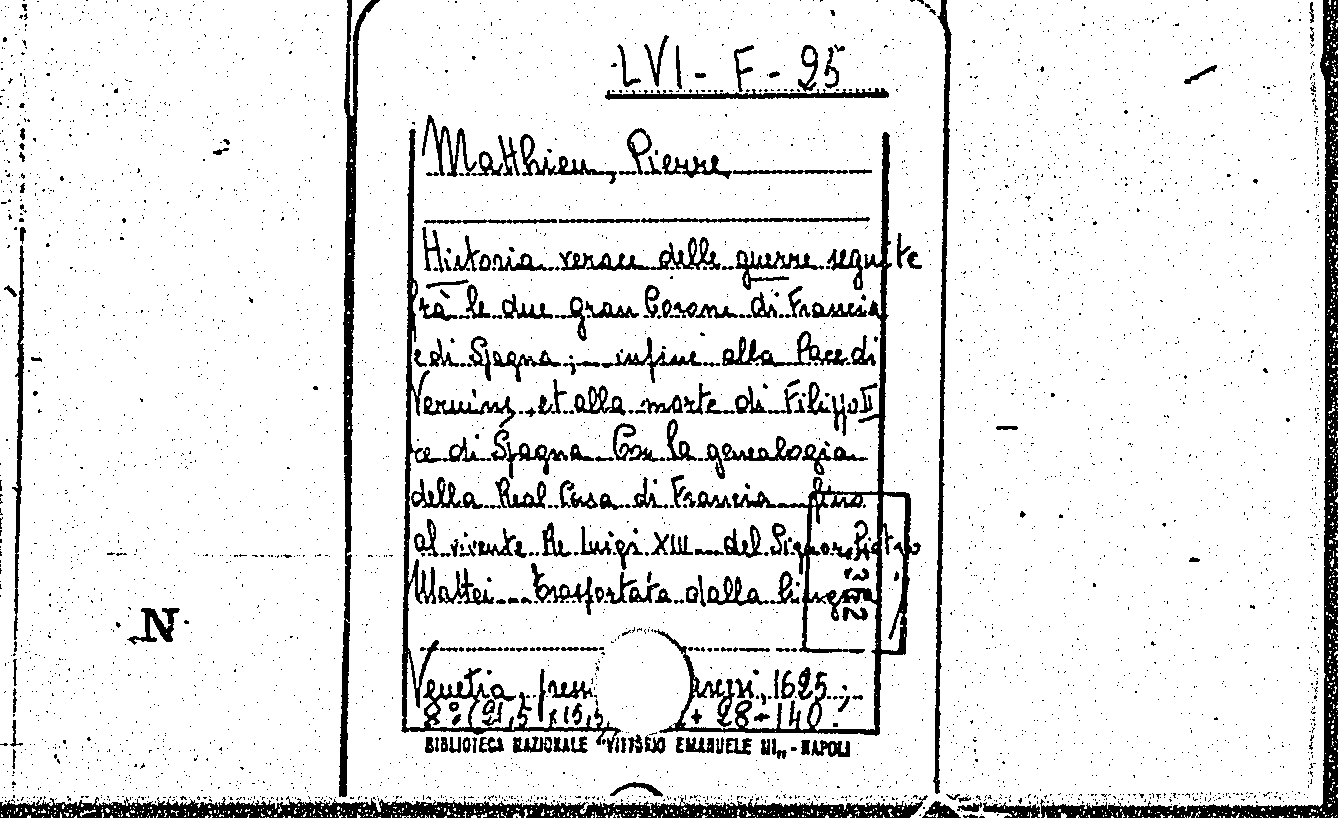 LVI - F - 95
Matthieu, Pierre
Historia verace delle guerre seguite
frà le due gran Corone di Francia
e di Spagna; infine alla Pace di
Veruins, et alla morte di Filippo II
re di Spagna Con la genealogia
della Real Casa di Francia fino
al vivente Re Luigi XIII del Signor Pietro
Mattei Trasportata dalla lingua
N
Venetia, 1625;
8° (21,5 x 15,5 + 28 + 140.
BIBLIOTECA NAZIONALE "VITTORIO EMANUELE III„ - NAPOLI